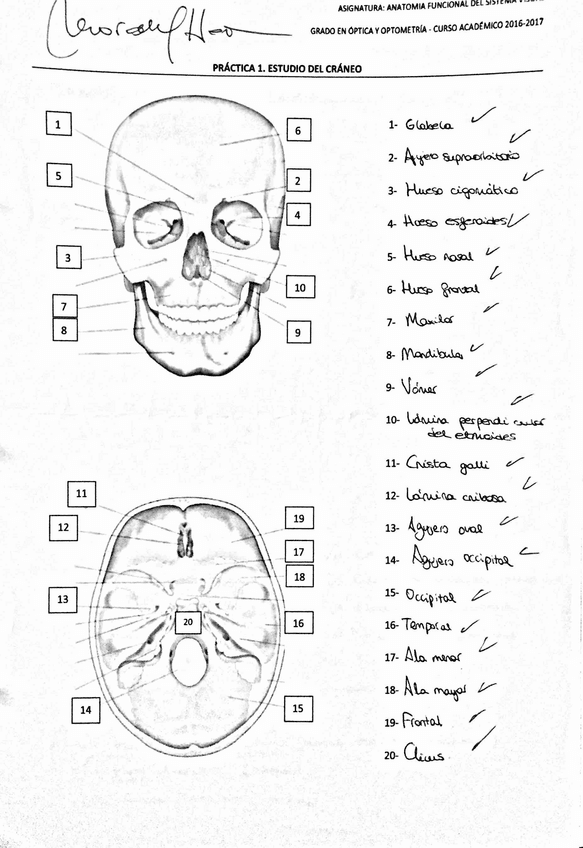 ASIGNATURA: ANATOMIA FUNCIONAL DEL SISTEMA
GRADO EN ÓPTICA Y OPTOMETRÍA - CURSO ACADÉMICO 2016-2017
PRÁCTICA 1. ESTUDIO DEL CRÁNEO
1
6
5
2
4
3
10
7
8
9
1- Glabela
2- Agujero supraorbitario
3- Hueso cigomático
4- Hueso esfenoides
5- Hueso nasal
6- Hueso frontal
7- Maxilar
8- Mandíbula
9- Vómer
10- Lámina perpendicular
del etmoides
11- Crista galli
12- Lámina cribosa
13- Agujero oval
14- Agujero occipital
15- Occipital
16- Temporal
17- Ala menor
18- Ala mayor
19- Frontal
20- Clivus
11
12
19
17
18
13
20
16
14
15